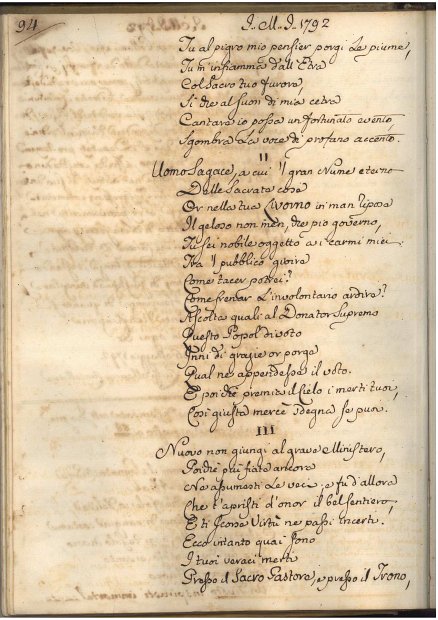 94 I. M. I. 1792
Tu al pigro mio pensier porgi le piume,
Tu m'infiamma dall'Etra
Col sacro tuo furore,
Si che al suon di mia cetra
Cantare io possa un fortunato evento,
Sgombra la voce di profano accento.
II
Uomo Sagace, a cui 'l gran Nume eterno
Delle Sacrate cose
Or nella tua Livorno in man ripose
Il geloso non men, che pio governo,
Tu sei nobile oggetto a i carmi miei.
Tra 'l pubblico gioire
Come tacer potrei?
Come frenar l'involontario ardire?
Ascolta quali al Donator Supremo
Questo Popol divoto
Inni di grazie or porga
Qual ne appendesse il voto.
E poiche premia il Cielo i merti tuoi,
Così giusta mercè sdegna se puoi.
III
Nuovo non giungi al grave Ministero,
Poiche più fiate ancora
Ne assumesti le veci, e fu d'allora
Che t'apristi d'onor il bel sentiero,
E ti scorse Virtù ne passi incerti.
Ecco intanto quai sono
I tuoi veraci merti
Presso il Sacro Pastore, e presso il Trono,